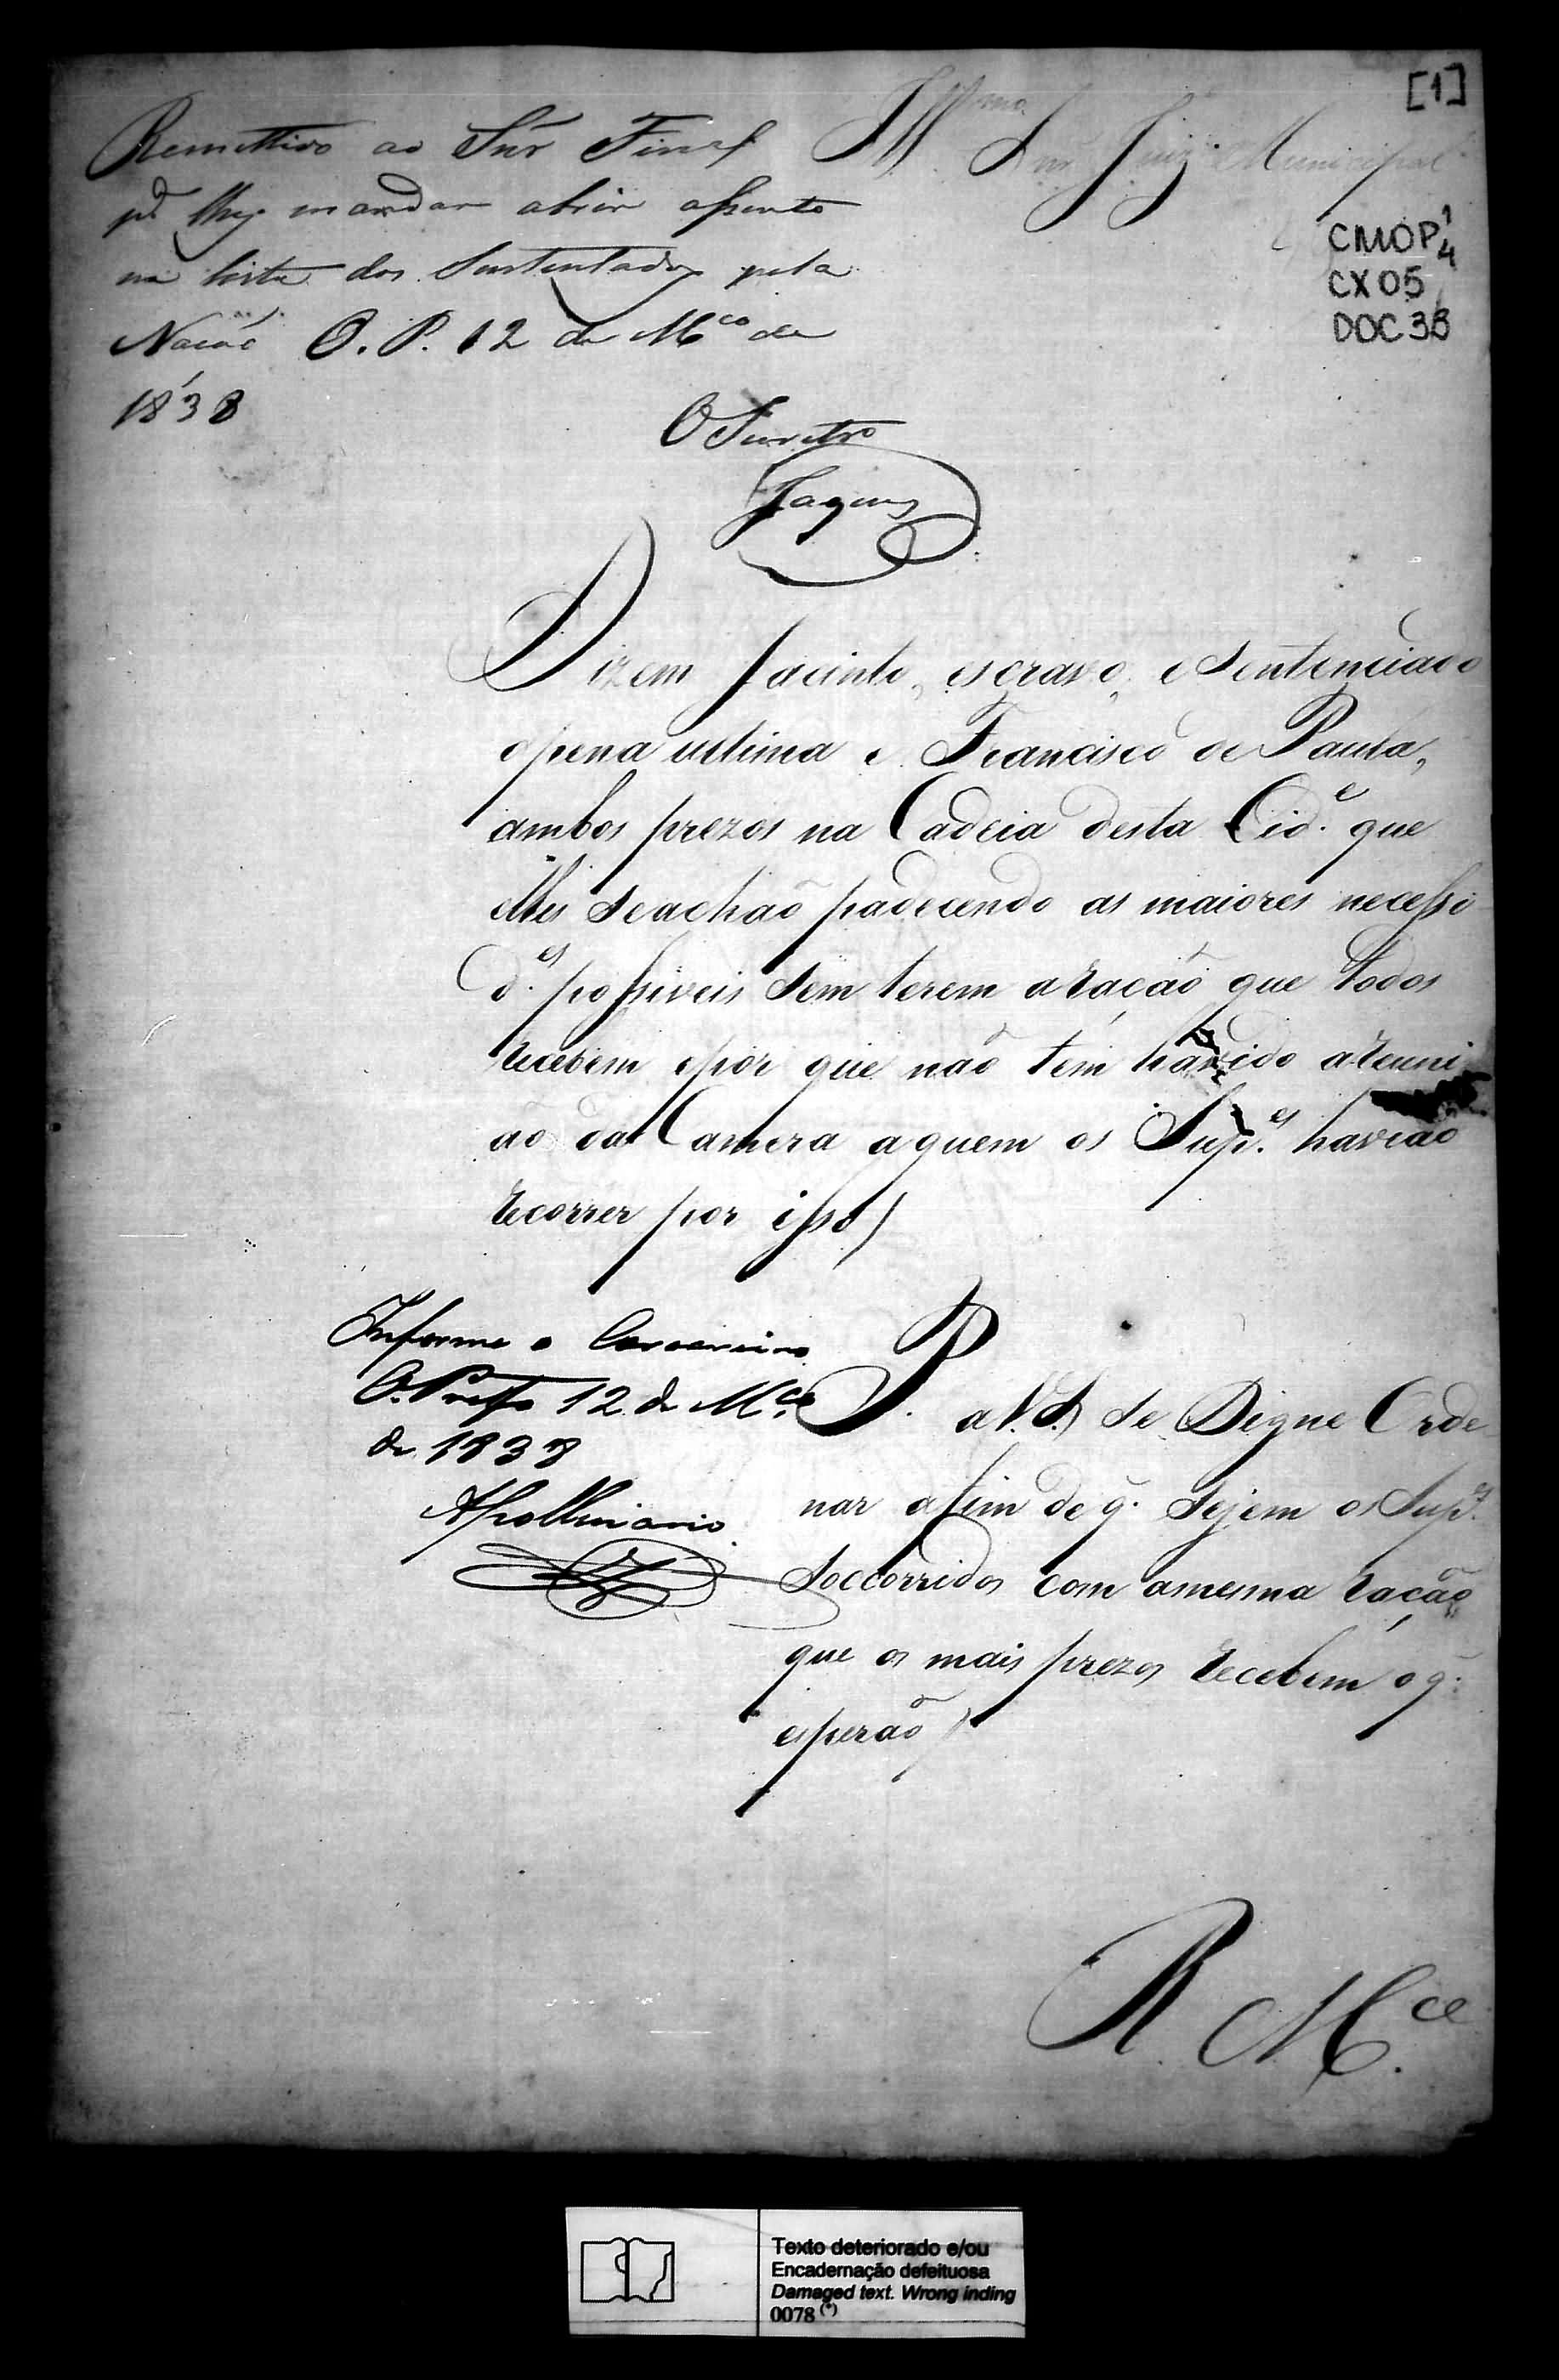 [1]
Remettido ao Snr Fiscal
pa lhes mandar abrir assento
na lista dos Sustentados pela
Nação O. P. 12 de Mço de
1838
Illmo Snr Juiz Municipal
CMOP 1/4
CX 05
DOC 38
O Secretro
Dizem Jacinto, escravo, e Sentenciado
a pena ultima e Francisco de Paula,
ambos prezos na Cadeia desta Cide. que
elles se achaõ padecendo as maiores necessi
des. possiveis sem terem a ração que todos
recebem e por que naõ tem havido a reuni
aõ da Camera a quem os Supes. haviaõ
recorrer por isso
Informe o Carcereiro
O. Preto 12 de Mço.
de 1838
Apollinario
P. a V. S. se Digne Orde
nar a fim de q. sejem os Supes.
Soccorridos com a mesma ração
que os mais prezos recebem o q.
esperaõ
R. Mce.
Texto deteriorado e/ou
Encadernação defeituosa
Damaged text. Wrong inding
0078 (*)